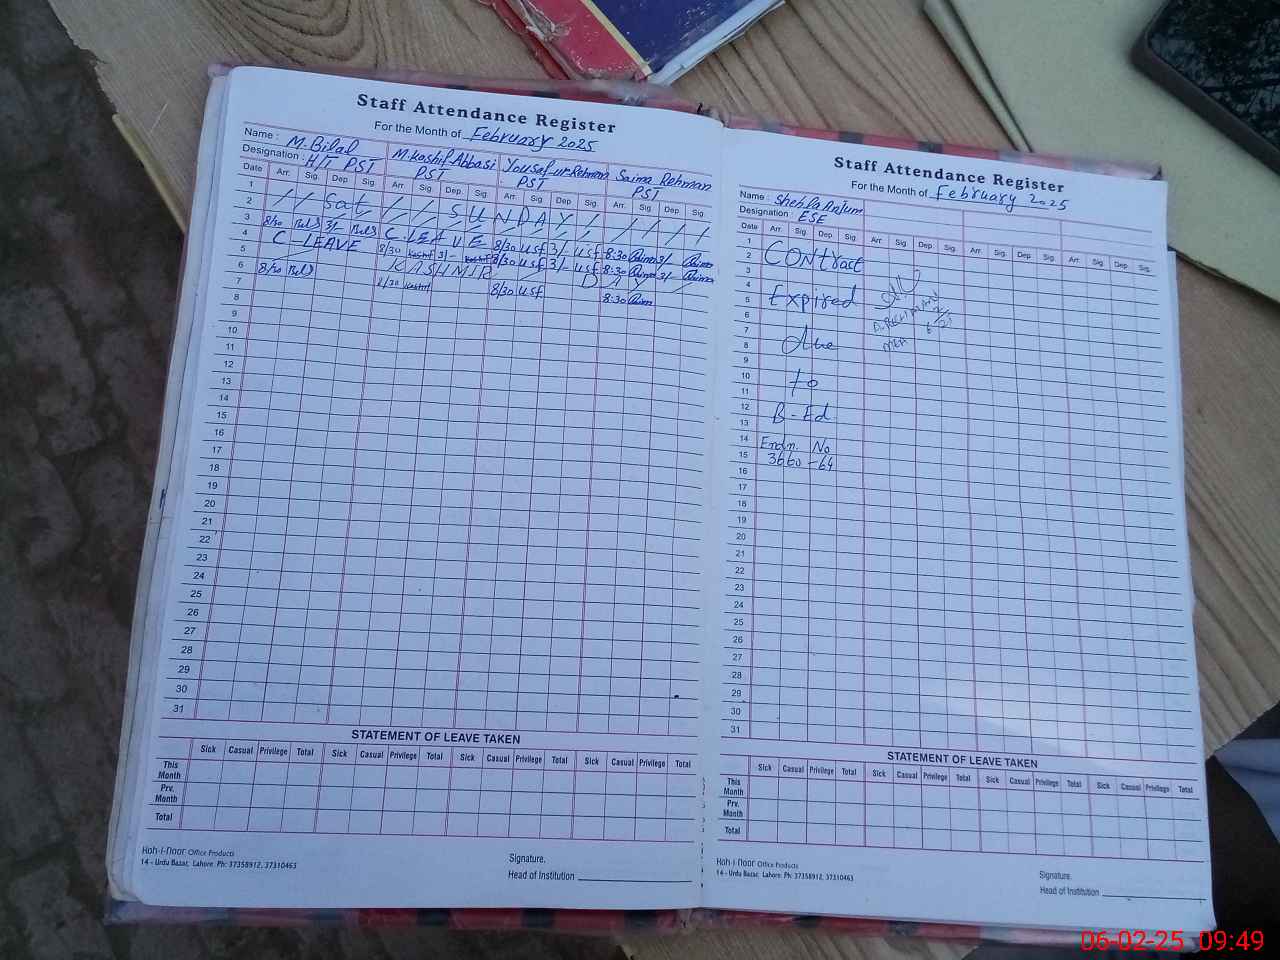 Staff Attendance Register
For the Month of February 2025
Name : M. Bilal M. Kashif Abbasi Yousaf-ur-Rehman Saima Rehman
Designation : H/T PST PST PST PST
Date Arr. Sig. Dep. Sig. Arr. Sig. Dep. Sig. Arr. Sig. Dep. Sig. Arr. Sig. Dep. Sig.
1
2 / / Sat / / / / S U N D A Y / / / / / /
3 8/30 3/- C LEAVE 8/30 usf 3/- usf 8:30 3/-
4 C-LEAVE 8/30 3/- 8/30 usf 3/- usf 8:30 3/-
5 KASHMIR DAY
6 8/30 8/30 8/30 usf 8:30
7
8
9
10
11
12
13
14
15
16
17
18
19
20
21
22
23
24
25
26
27
28
29
30
31
STATEMENT OF LEAVE TAKEN
Sick Casual Privilege Total Sick Casual Privilege Total Sick Casual Privilege Total Sick Casual Privilege Total
This Month
Prv. Month
Total
Koh-i-noor Office Products
14 - Urdu Bazar, Lahore. Ph: 37358912, 37310463
Signature.
Head of Institution
Staff Attendance Register
For the Month of February 2025
Name : Shehla Anjum
Designation : ESE
Date Arr. Sig. Dep. Sig. Arr. Sig. Dep. Sig. Arr. Sig. Dep. Sig. Arr. Sig. Dep. Sig.
1
2 Contract
3
4
5 Expired
6
7
8 due
9
10 to
11
12 B-Ed
13
14 Endn. No
15 3660-64
16
17
18
19
20
21
22
23
24
25
26
27
28
29
30
31
MEA
STATEMENT OF LEAVE TAKEN
Sick Casual Privilege Total Sick Casual Privilege Total Sick Casual Privilege Total Sick Casual Privilege Total
This Month
Prv. Month
Total
Koh-i-noor Office Products
14 - Urdu Bazar, Lahore. Ph: 37358912, 37310463
Signature.
Head of Institution
06-02-25 09:49